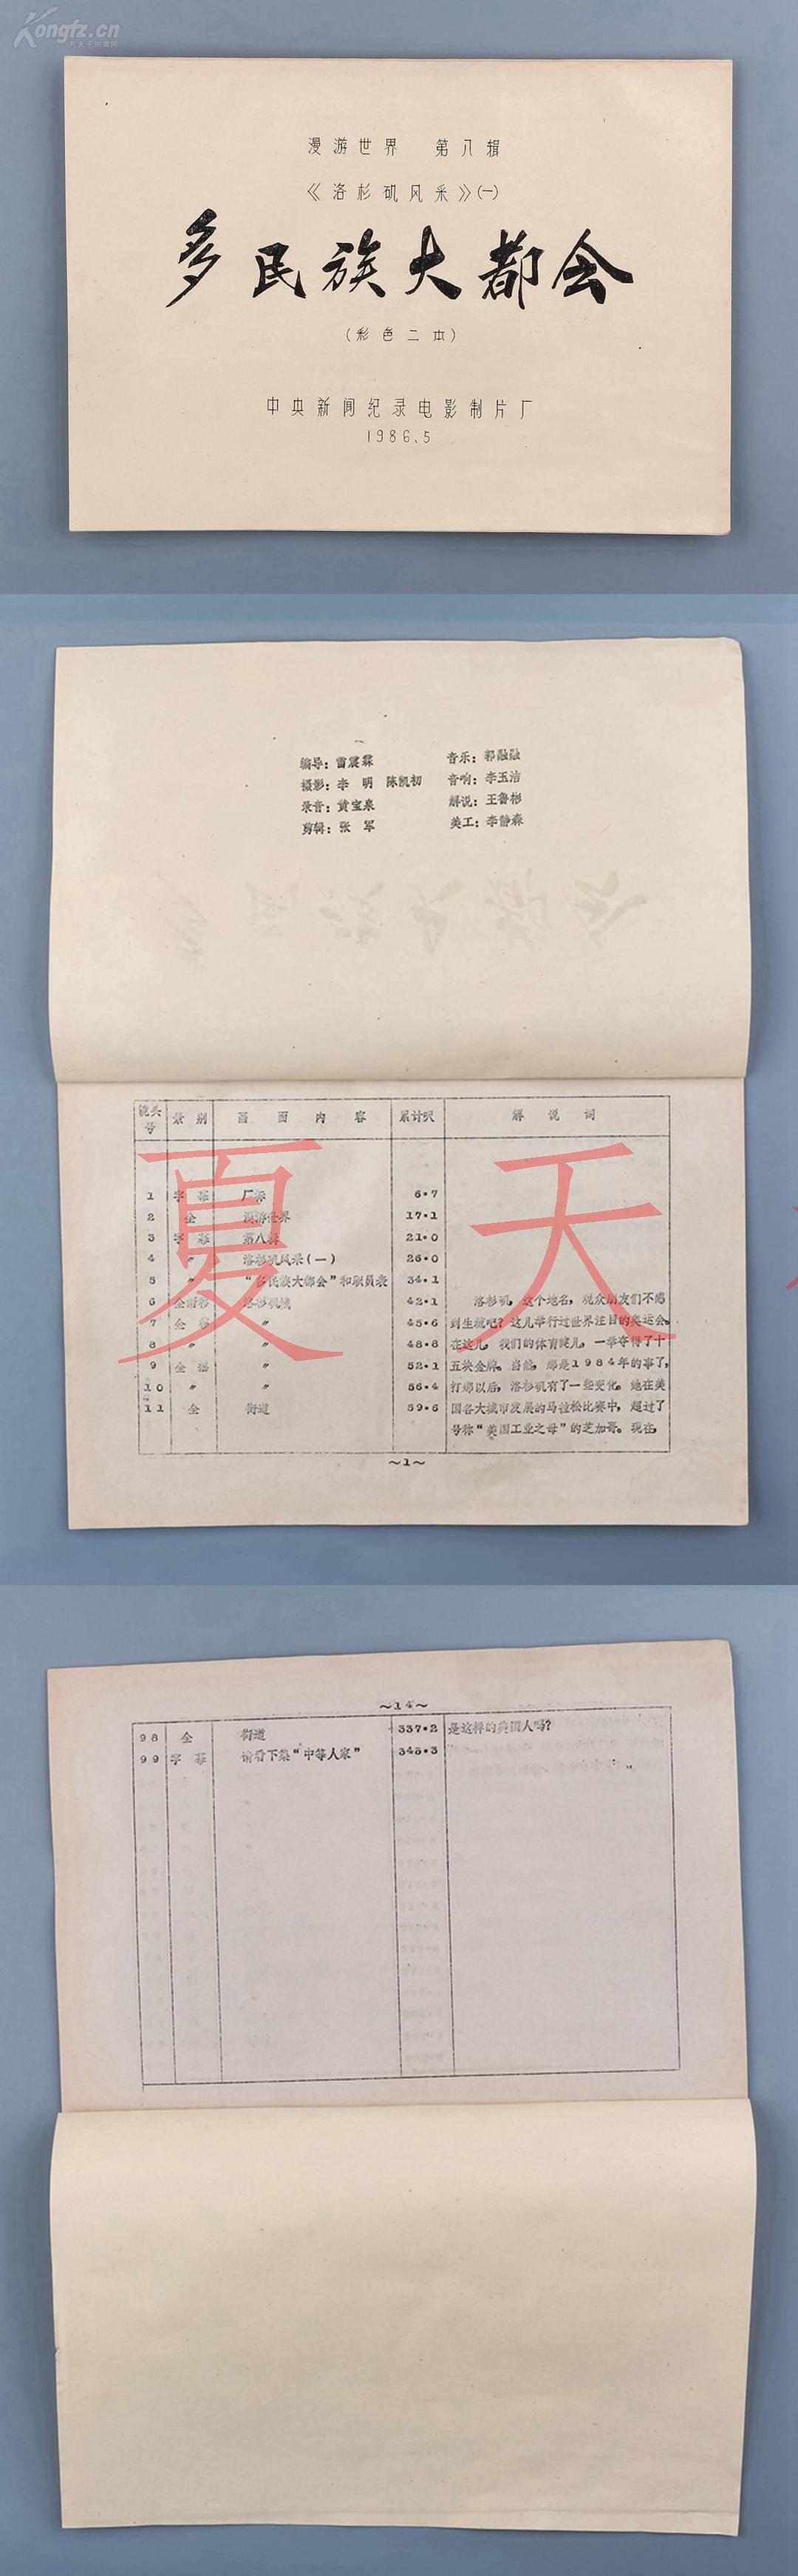 Kongfz.cn
孔夫子旧书网
漫游世界 第八辑
《洛杉矶风采》(一)
多民族大都会
(彩色二本)
中央新闻纪录电影制片厂
1986.5
编导：雷震霖 音乐：郭融融
摄影：李 明 陈凯初 音响：李玉洁
录音：黄宝泉 解说：王鲁彬
剪辑：张 军 美工：李静森
镜头号 景别 画面内容 累计呎 解说词
1 字幕 厂标 6·7
2 全 漫游世界 17·1
3 字幕 第八辑 21·0
4 〃 洛杉矶风采(一) 26·0
5 〃 “多民族大都会”和职员表 34·1
6 全 洛杉矶城 42·1 洛杉矶，这个地名，观众朋友们不感
7 全 〃 45·6 到生疏吧？这儿举行过世界注目的奥运会。
8 〃 〃 48·8 在这儿，我们的体育健儿，一举夺得了十
9 全摇 〃 52·1 五块金牌。当然，那是1984年的事了，
10 〃 〃 56·4 打那以后，洛杉矶有了一些变化。她在美
11 全 街道 59·6 国各大城市发展的马拉松比赛中，超过了
号称“美国工业之母”的芝加哥。现在，
～1～
夏天
～14～
98 全 街道 337·2 是这样的美国人吗？
99 字幕 请看下集“中等人家” 345·3